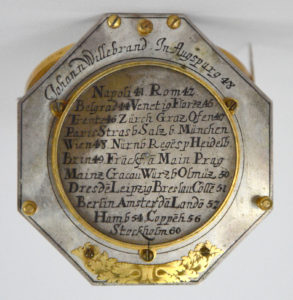 Johann Willebrand In Augspurg 48
Napoli 41 Rom 42
Belgrad 44 Venetig Florẽz 45
Trent 46 Zürch Graz Ofen 47
Paris Strasb Salzb München
Wien 48 Nürnb Regesp Heidelb
Brin 49 Frãckf ã Main Prag
Mainz Cracau Würzb Olmüz 50
Dresdẽ Leipzig Breslau Cölle 51
Berlin Amsterdã Landõ 52
Hamb 54 Coppẽh 56
Stockholm 60